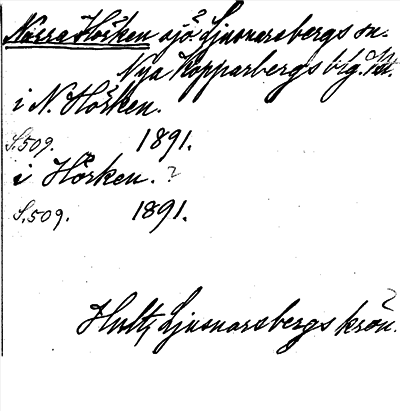 Norra Hörken sjö? Ljusnarsbergs sn.
Nya Kopparbergs blg.
i N. Hörken.
S. 509. 1891.
i Hörken. ?
S. 509. 1891.
Hult, Ljusnarsbergs krön. ?